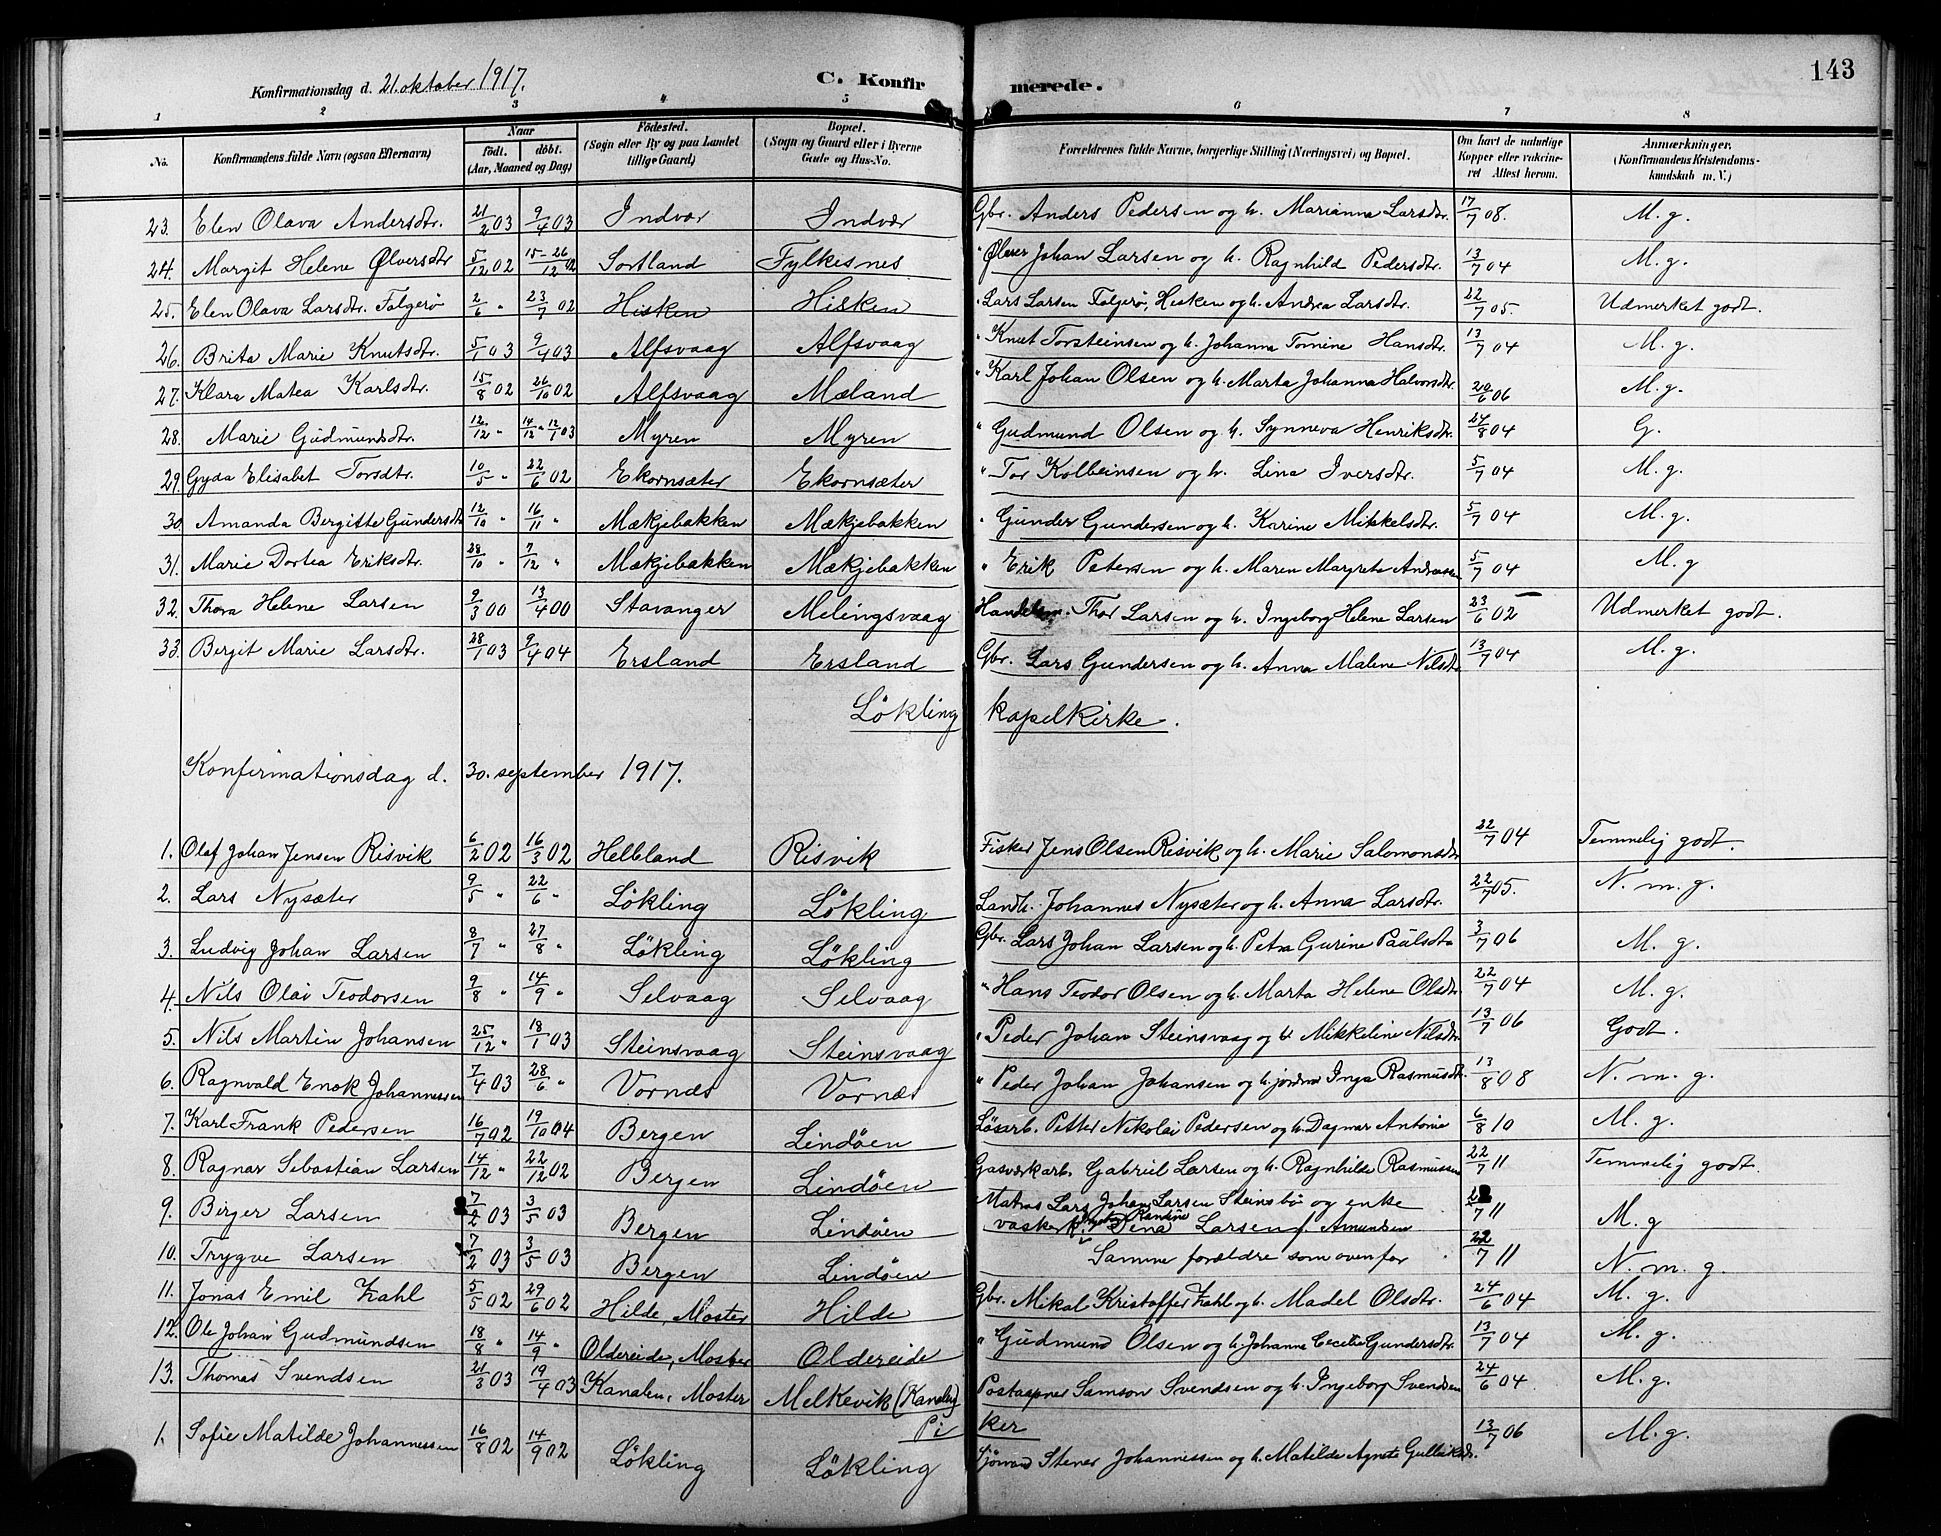 143
Konfirmationsdag d. 21. oktober 1917. C. Konfirmerede.
1 2 3 4 5 6 7 8
No. Konfirmandens fulde Navn (ogsaa Efternavn) Naar født. døbt. (Aar, Maaned og Dag) Fødested. (Sogn eller By og paa Landet tillige Gaard) Bopæl. (Sogn og Gaard eller i Byerne Gade og Hus-No. Forældrenes fulde Navne, borgerlige Stilling (Næringsvei) og Bopæl. Om havt de naturlige Kopper eller vaccineret Attest herom. Anmærkninger. (Konfirmandens Kristendomskundskab m. V.)
23. Elen Olava Andersdtr. 21/2 03 9/4 03 Indvær Indvær Gbr. Anders Pedersen og h. Marianna Larsdtr. 17/7 08. M. g.
24. Margit Helene Ølversdtr 5/12 02 15-26/12 02 Sortland Fylkesnes " Ølver Johan Larsen og h. Ragnhild Pedersdtr. 13/7 04 M. g.
25. Elen Olava Larsdtr. Folgerø 2/6 " 23/7 02 Hisken Hisken " Lars Larsen Folgerø, Hisken og h. Andrea Larsdtr. 22/7 05. Udmerket godt.
26. Brita Marie Knutsdtr. 5/1 03 9/4 03 Alfsvaag Alfsvaag " Knut Torsteinsen og h. Johanna Tomine Hansdtr. 13/7 04 M. g.
27. Klara Matea Karlsdtr. 15/8 02 26/10 02 Alfsvaag Mæland " Karl Johan Olsen og h. Marta Johanna Halvorsdtr. 29/6 06 M. g.
28. Marie Gudmundsdtr. 12/12 " 14/12 " 12/1 03 Myren Myren " Gudmund Olsen og h. Synneva Henriksdtr. 27/8 04 G.
29. Gyda Elisabet Torsdtr. 10/5 " 22/6 02 Ekornsæter Ekornsæter " Tor Kolbeinsen og h. Lina Iversdtr. 5/7 04 M. g.
30. Amanda Bergitte Gundersdtr 12/10 " 16/11 " Mækjebakken Mækjebakken " Gunder Gundersen og h. Karine Mikkelsdtr. 5/7 04 M. g.
31. Marie Dortea Eriksdtr. 28/10 " 7/12 " Mækjebakken Mækjebakken " Erik Petersen og h. Maren Margreta Andreassen 5/7 04 M. g
32. Thora Helene Larsen 9/3 00 13/4 00 Stavanger Melingsvaag Thor Larsen og h. Ingeborg Helene Larsen 23/6 02 Udmerket godt.
33. Bergit Marie Larsdtr. 28/1 03 9/4 04 Ersland Ersland Gbr. Lars Gundersen og h. Anna Malene Nilsdtr 13/7 04 M. g.
Løkling kapelkirke.
Konfirmationsdag d. 30. september 1917.
1. Olaf Johan Jensen Risvik 6/2 02 16/3 02 Helland Risvik Fisker Jens Olsen Risvik og h. Marie Salomonsdtr 22/7 04 Temmelig godt.
2. Lars Nysæter 9/5 " 22/6 " Løkling Løkling Landh. Johannes Nysæter og h. Anna Larsdtr. 22/7 05. N. m. g.
3. Ludvig Johan Larsen 8/7 " 27/8 " Løkling Løkling Gbr. Lars Johan Larsen og h. Petra Gurine Paulsdtr 3/7 06 M. g.
4. Nils Olai Teodorsen 9/8 " 14/9 " Selvaag Selvaag " Hans Teodor Olsen og h. Marta Helene Olsdtr. 22/7 04 M. g.
5. Nils Martin Johansen 25/12 " 18/1 03 Steinsvaag Steinsvaag " Peder Johan Steinsvaag og h. Mikkeline Nilsdtr 13/7 06 Godt.
6. Ragnvald Enok Johannessen 7/4 03 28/6 " Vornes Vornes " Peder Johan Johansen og h. jordm. Inga Rasmusdtr. 13/8 08 N. m. g.
7. Karl Frank Pedersen 16/7 02 19/10 04 Bergen Lindøen Løsarb. Petter Nikolai Pedersen og h. Dagmar Antonie 6/8 10 M. g.
8. Ragnar Sebastian Larsen 14/12 " 22/12 02 Bergen Lindøen Gasværkarb. Gabriel Larsen og h. Ragnhilde Rasmussen 22/7 11 Temmelig godt.
9. Birger Larsen 7/2 03 3/5 03 Bergen Lindøen Matros Lars Johan Larsen Steinsbø og enke
Larsen f. Amundsen /7 11 M. g
10. Trygve Larsen 7/2 03 3/5 03 Bergen Lindøen Samme forældre som ovenfor 22/7 11 N. m. g.
11. Jonas Emil Zahl 5/5 02 29/6 02 Hilde, Moster Hilde Gbr. Mikal Kristoffer Zahl og h. Madel Olsdtr. 24/6 04 M. g.
12. Ole Johan Gudmundsen 18/8 " 14/9 " Oldereide, Moster Oldereide " Gudmund Olsen og h. Johanna Cecilie Gundersdtr. 13/7 04 M. g.
13. Thomas Svendsen 21/3 03 19/4 03 Kanalen, Moster Melkevik (Kanalen) Postaapner Samson Svendsen og h. Ingeborg Svendsen 24/6 04. M. g.
Piker
1. Sofie Matilde Johannessen 16/8 02 14/9 02 Løkling Løkling Sjømand Stener Johannissen og h. Matilde Agnete Gulliksdr. 13/7 06 M. g.